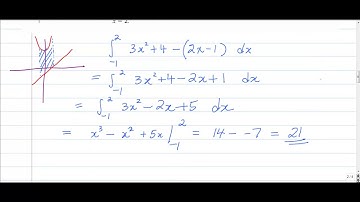 ∫₋₁² 3x²+4 −(2x−1) dx
= ∫₋₁² 3x²+4−2x+1 dx
= ∫₋₁² 3x²−2x+5 dx
= x³ − x² + 5x |₋₁² = 14 − −7 = 21